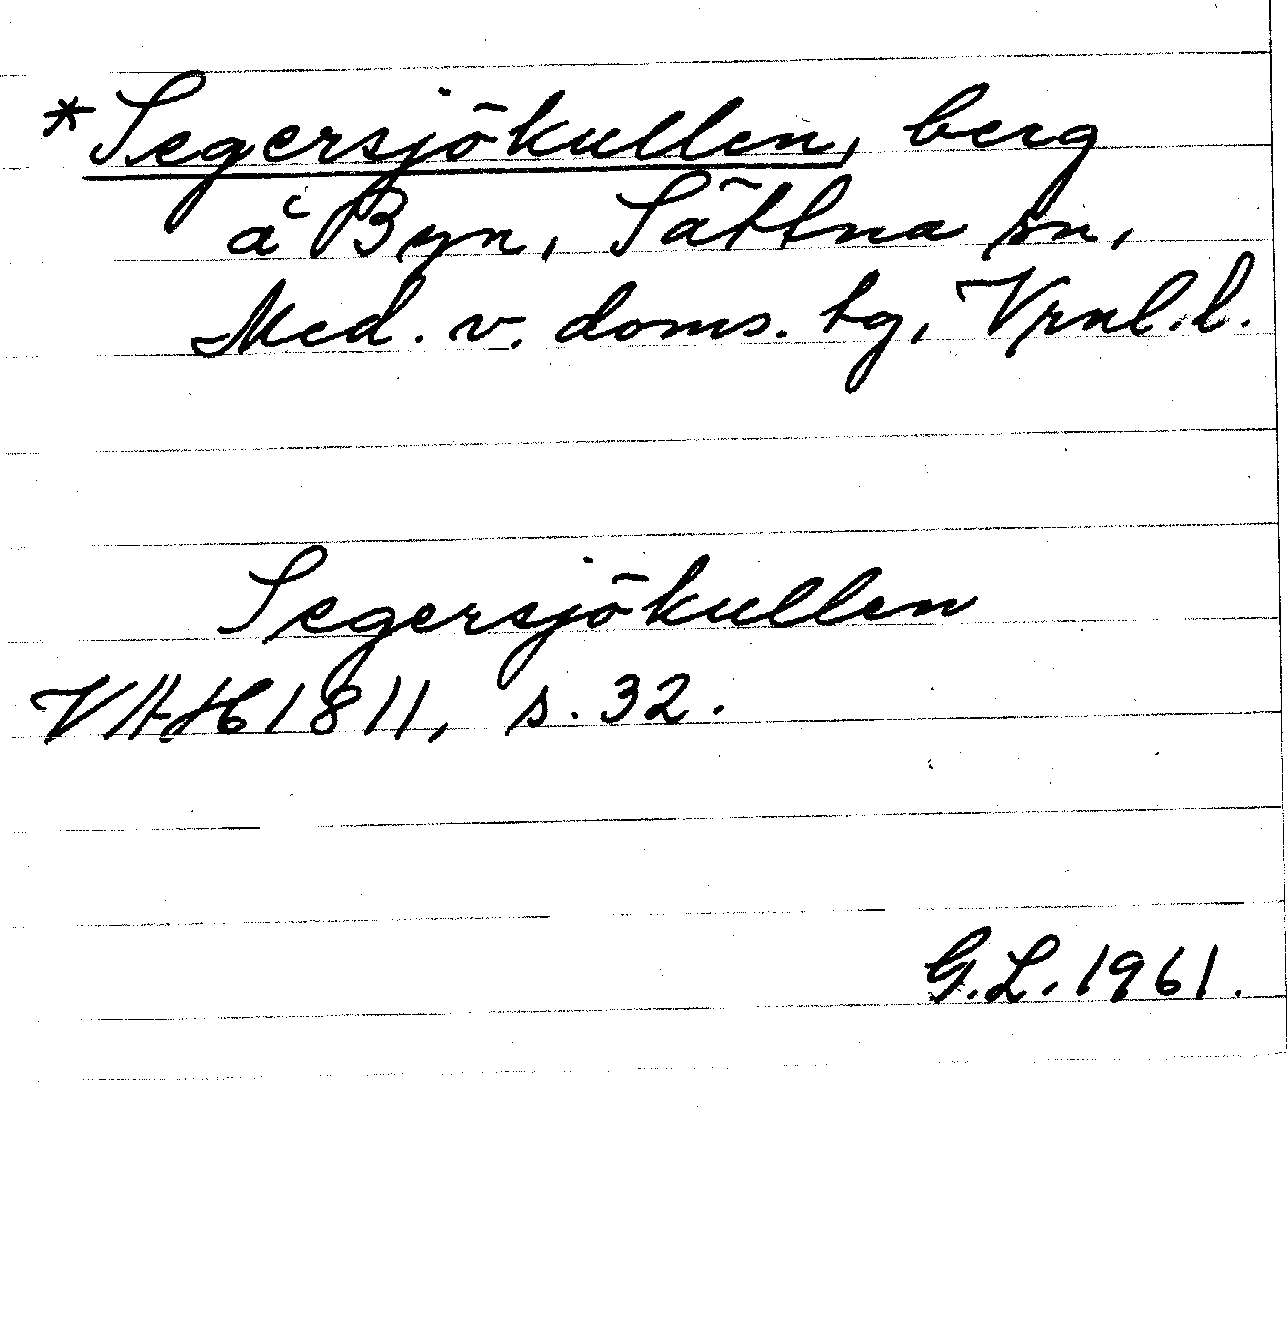 *Segersjökullen, berg
å Byn, Sättna sn,
Med. v. doms. tg, Vrnl. l.
Segersjökullen
1811, s. 32.
G.L. 1961.